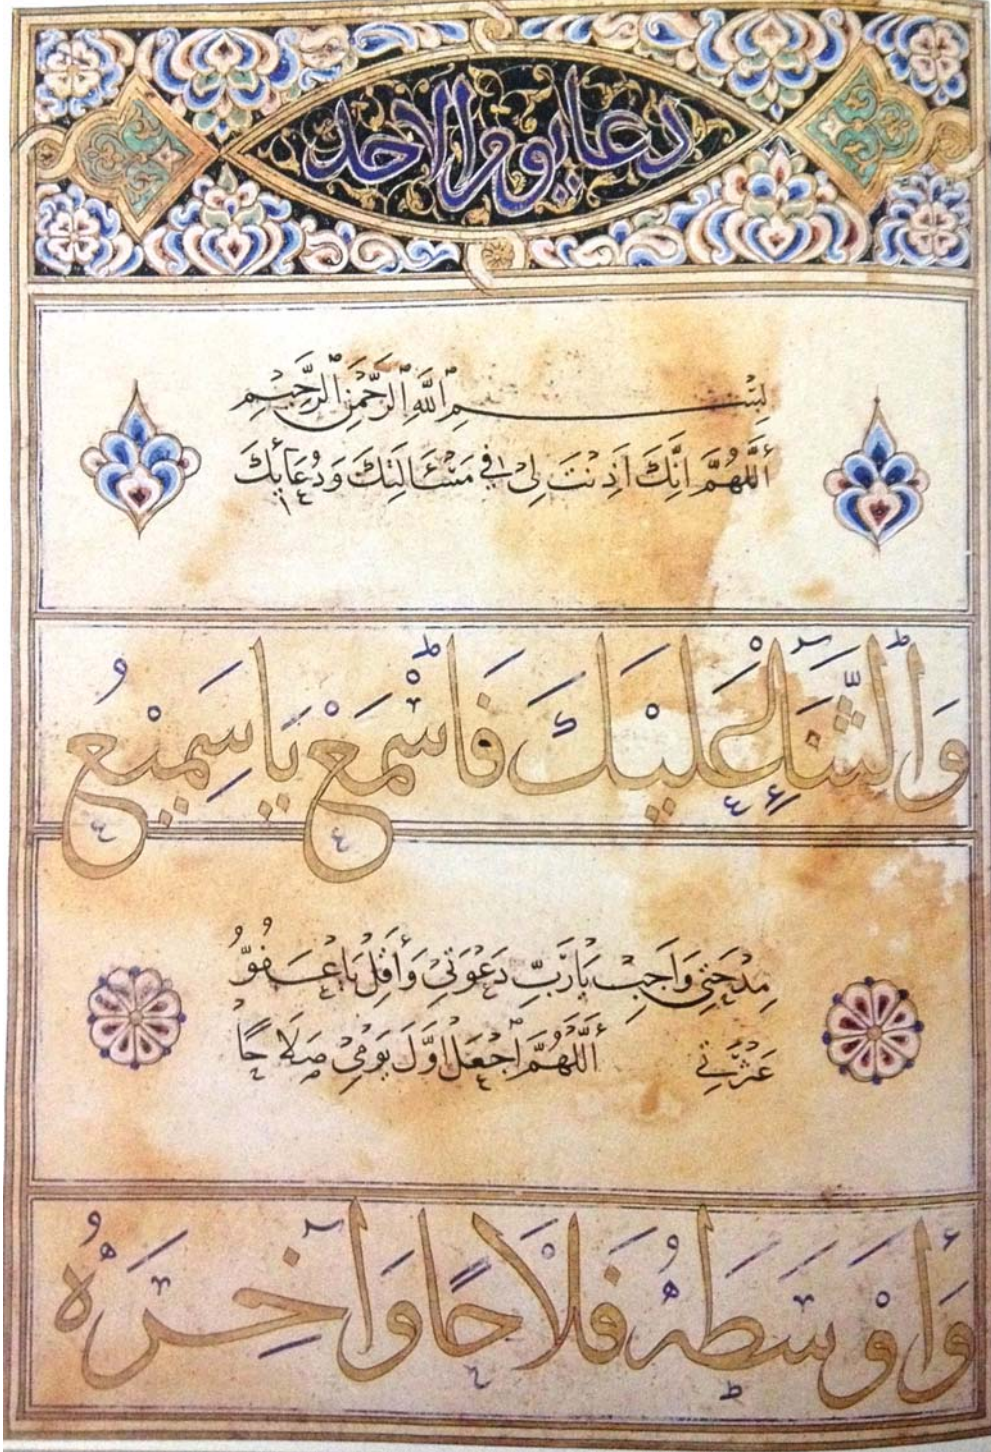 دعا يوم الاحد
بِسْمِ ٱللَّهِ ٱلرَّحْمَنِ ٱلرَّحِيْمِ
أَللَّهُمَّ اِنَّكَ اَذِنْتَ لِيْ فِيْ مَسْئَالَتِكَ وَدُعَايِٕكَ
وَٱلثَّنَاءِ عَلَيْكَ فَاسْمَعْ يَا سَمِيْعُ
مِدْحَتِيْ وَاَجِبْ يَا رَبِّ دَعْوَتِيْ وَأَقِلْ يَا عَفُوُّ
عَثْرَتِيْ أَللَّهُمَّ ٱجْعَلْ اَوَّلَ يَوْمِيْ صَلَاحًا
وَأَوْسَطَهُ فَلَاحًا وَآخِرَهُ